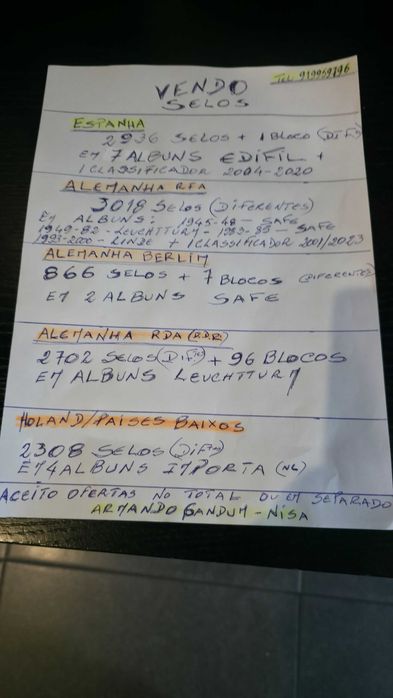 Tel 919959796
VENDO
SELOS
ESPANHA
2936 SELOS + 1 BLOCO (DIFS)
EM 7 ALBUNS EDIFIL +
1 CLASSIFICADOR 2004-2020
ALEMANHA RFA
3018 SELOS (DIFERENTES)
EM ALBUNS: 1945-48 - SAFE
1949-82 - LEUCHTTURM - 1983-89 - SAFE
1993-2000 - LINDE + 1 CLASSIFICADOR 2001/2023
ALEMANHA BERLIM
866 SELOS + 7 BLOCOS (DIFERENTES)
EM 2 ALBUNS SAFE
ALEMANHA RDA (DDR)
2702 SELOS (DIFS) + 96 BLOCOS
EM ALBUNS LEUCHTTURM
HOLAND/PAISES BAIXOS
2308 SELOS (DIFS)
EM 4 ALBUNS IMPORTA (NL)
ACEITO OFERTAS NO TOTAL OU EM SEPARADO
ARMANDO GANDUM - NISA